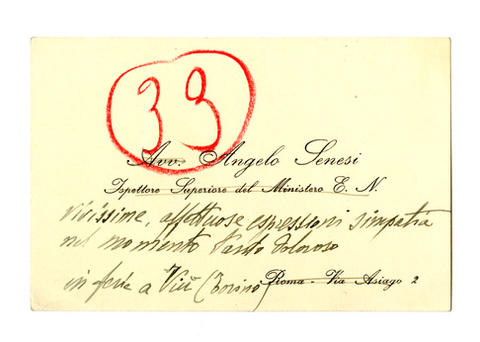 33
Avv. Angelo Senesi
Ispettore Superiore del Ministero E. N.
vivissime, affettuose espressioni simpatia
nel momento tanto doloroso
in ferie a Viù (Torino)
Roma - Via Asiago 2